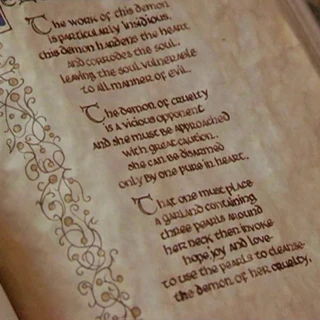 The work of this demon
is particularly insidious.
this demon hardens the heart
and corrodes the soul.
leaving the soul vulnerable
to all manner of evil.
The demon of cruelty
is a vicious opponent
and she must be approached
with great caution.
she can be disarmed
only by one pure in heart.
That one must place
a garland containing
three pearls around
her neck then invoke
hope, joy and love-
to use the pearls to cleanse-
the demon of her cruelty.